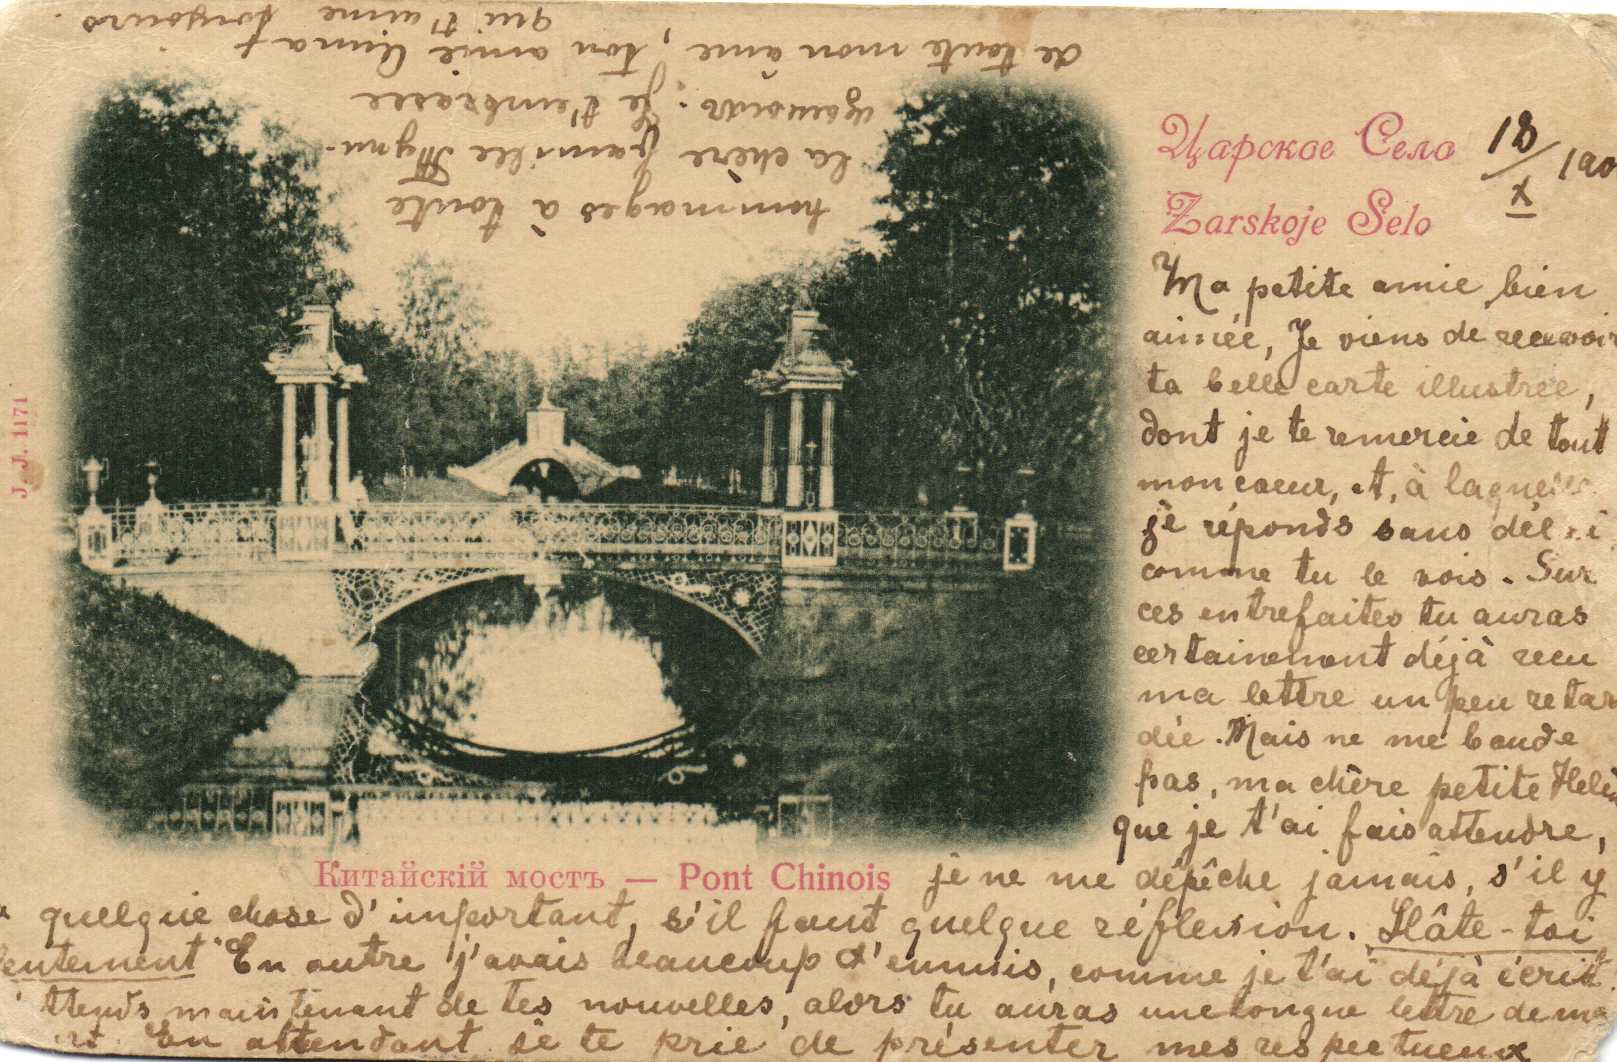 Царское Село
Zarskoje Selo
18/X 190
J. J. 1171
Ma petite amie bien
aimée, Je viens de recevoir
ta belle carte illustrée,
dont je te remercie de tout
mon coeur, et, à laquelle
je réponds sans délai
comme tu le vois. Sur
ces entrefaites tu auras
certainement déjà recu
ma lettre un peu retar
dée. Mais ne me boude
pas, ma chère petite Helè
que je t'ai fais attendre,
Китайскій мостъ — Pont Chinois
je ne me dépêche jamais, s'il y
a quelque chose d'important, s'il faut quelque réflexion. Hâte-toi
lentement" En outre j'avais beaucoup d'ennuis, comme je t'ai déjà écrit.
ttends maintenant de tes nouvelles, alors tu auras une longue lettre de ma
rt. En attendant je te prie de présenter mes respectueux
hommages à toute
la chère famille
Je t'embrasse
de toute mon âme, ton amie Anna
qui t'aime toujours.